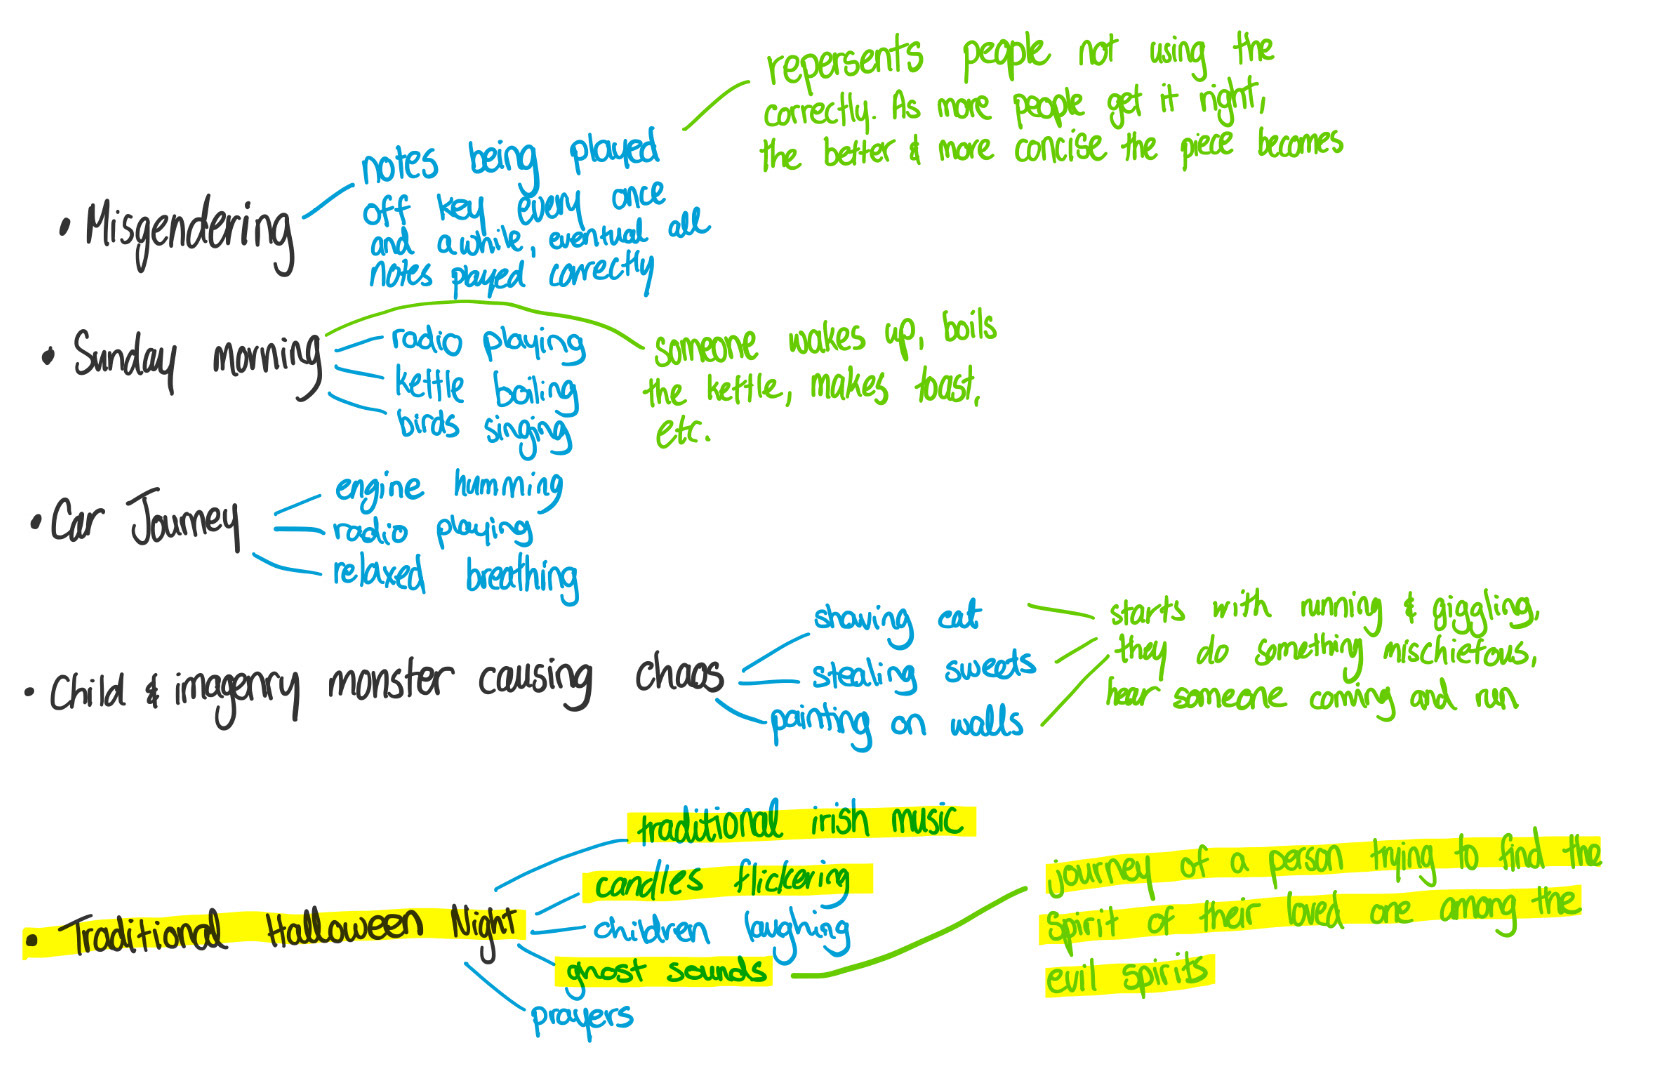 repersents people not using the
correctly. As more people get it right,
the better & more concise the piece becomes
• Misgendering
notes being played
off key every once
and awhile, eventual all
notes played correctly
• Sunday morning
radio playing
kettle boiling
birds singing
someone wakes up, boils
the kettle, makes toast,
etc.
• Car Journey
engine humming
radio playing
relaxed breathing
• Child & imagenry monster causing chaos
shaving cat
stealing sweets
painting on walls
starts with running & giggling,
they do something mischiefous,
hear someone coming and run
• Traditional Halloween Night
traditional irish music
candles flickering
children laughing
ghost sounds
prayers
journey of a person trying to find the
spirit of their loved one among the
evil spirits